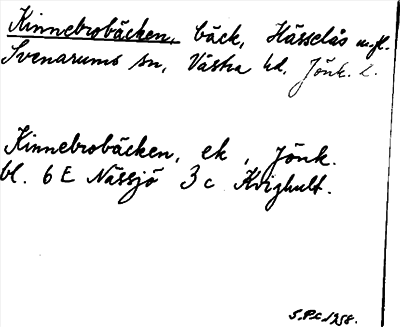 Kinnebrobäcken, bäck, Hässelås m.fl.
Svenarums sn, Västra hd, Jönk. l.
Kinnebrobäcken, ek, Jönk.
bl. 6 E Nässjö 3 c Kvighult.
S.P.C. 1958.